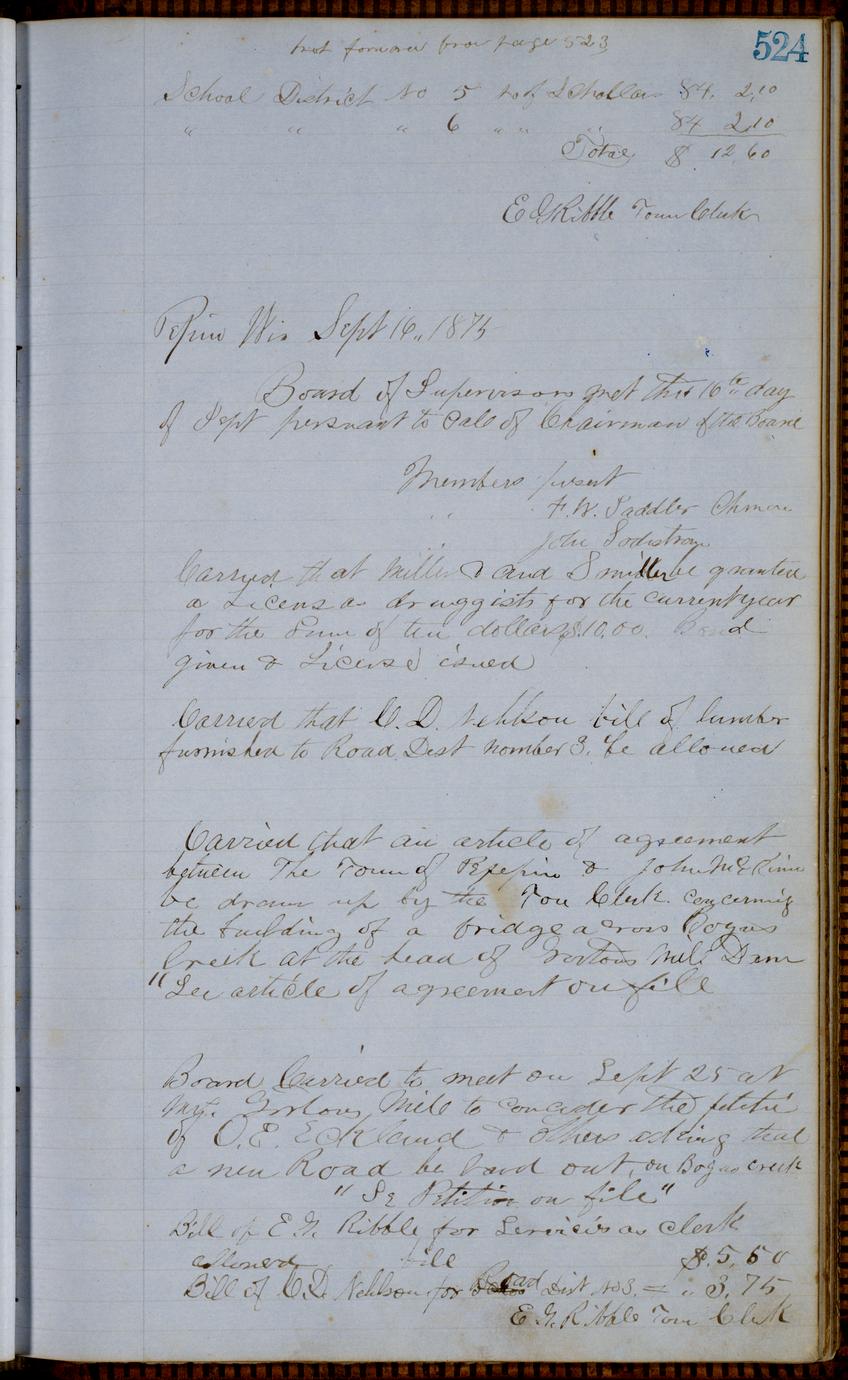 524
brot forward from page 523
School District No 5 No of Schollars 84. 2,10
" " " 6 " " " 84 2.10
Total $ 12,60
E G Ribble Town Clerk
Pepin Wis Sept 16,, 1875
Board of Supervisors met this 16th day
of Sept persuant to Call of Chairman of the Board
Members present
" F. W. Saddler Chman
John Sodistrom
Carried that Miller & and Smiller be granted
a License as druggists for the current year
for the Sum of ten dollars $10.00. Bond
given & License issued
Carried that C. D. bill of lumber
furnished to Road Dist Nomber 3. be allowed
Carried that an article of agreement
between The Town of Pepepin & John
be drawn up by the Ton Clerk. concerning
the building of a bridge across Bogus
Creek at the head of Mill Dam
"See article of agreement on file
Board Carried to meet on Sept 25 at
Mill to concider the
of O. E. Ecklund & others asking that
a new Road be laid out, on Bogus creek
"Se Petition on file"
Bill of E. G. Ribble for Services as clerk
allowed $.5,50
Bill of C. D. for Road Dist No 3. = " 3,75
E. G. Ribble Town Clerk